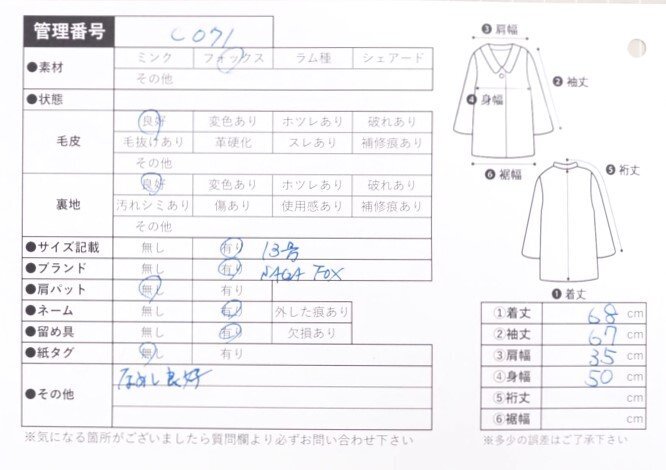 管理番号 C071
●素材 ミンク フォックス ラム種 シェアード
その他
●状態
毛皮 良好 変色あり ホツレあり 破れあり
毛抜けあり 革硬化 スレあり 補修痕あり
その他
裏地 良好 変色あり ホツレあり 破れあり
汚れシミあり 傷あり 使用感あり 補修痕あり
その他
●サイズ記載 無し 有り 13号
●ブランド 無し 有り SAGA FOX
●肩パット 無し 有り
●ネーム 無し 有り 外した痕あり
●留め具 無し 有り 欠損あり
●紙タグ 無し 有り
●その他 なめし良好
※気になる箇所がございましたら質問欄より必ずお問い合わせ下さい
❸肩幅
❷袖丈
❹身幅
❻裾幅
❺裄丈
❶着丈
①着丈 68 cm
②袖丈 67 cm
③肩幅 35 cm
④身幅 50 cm
⑤裄丈 cm
⑥裾幅 cm
※多少の誤差はご了承下さい